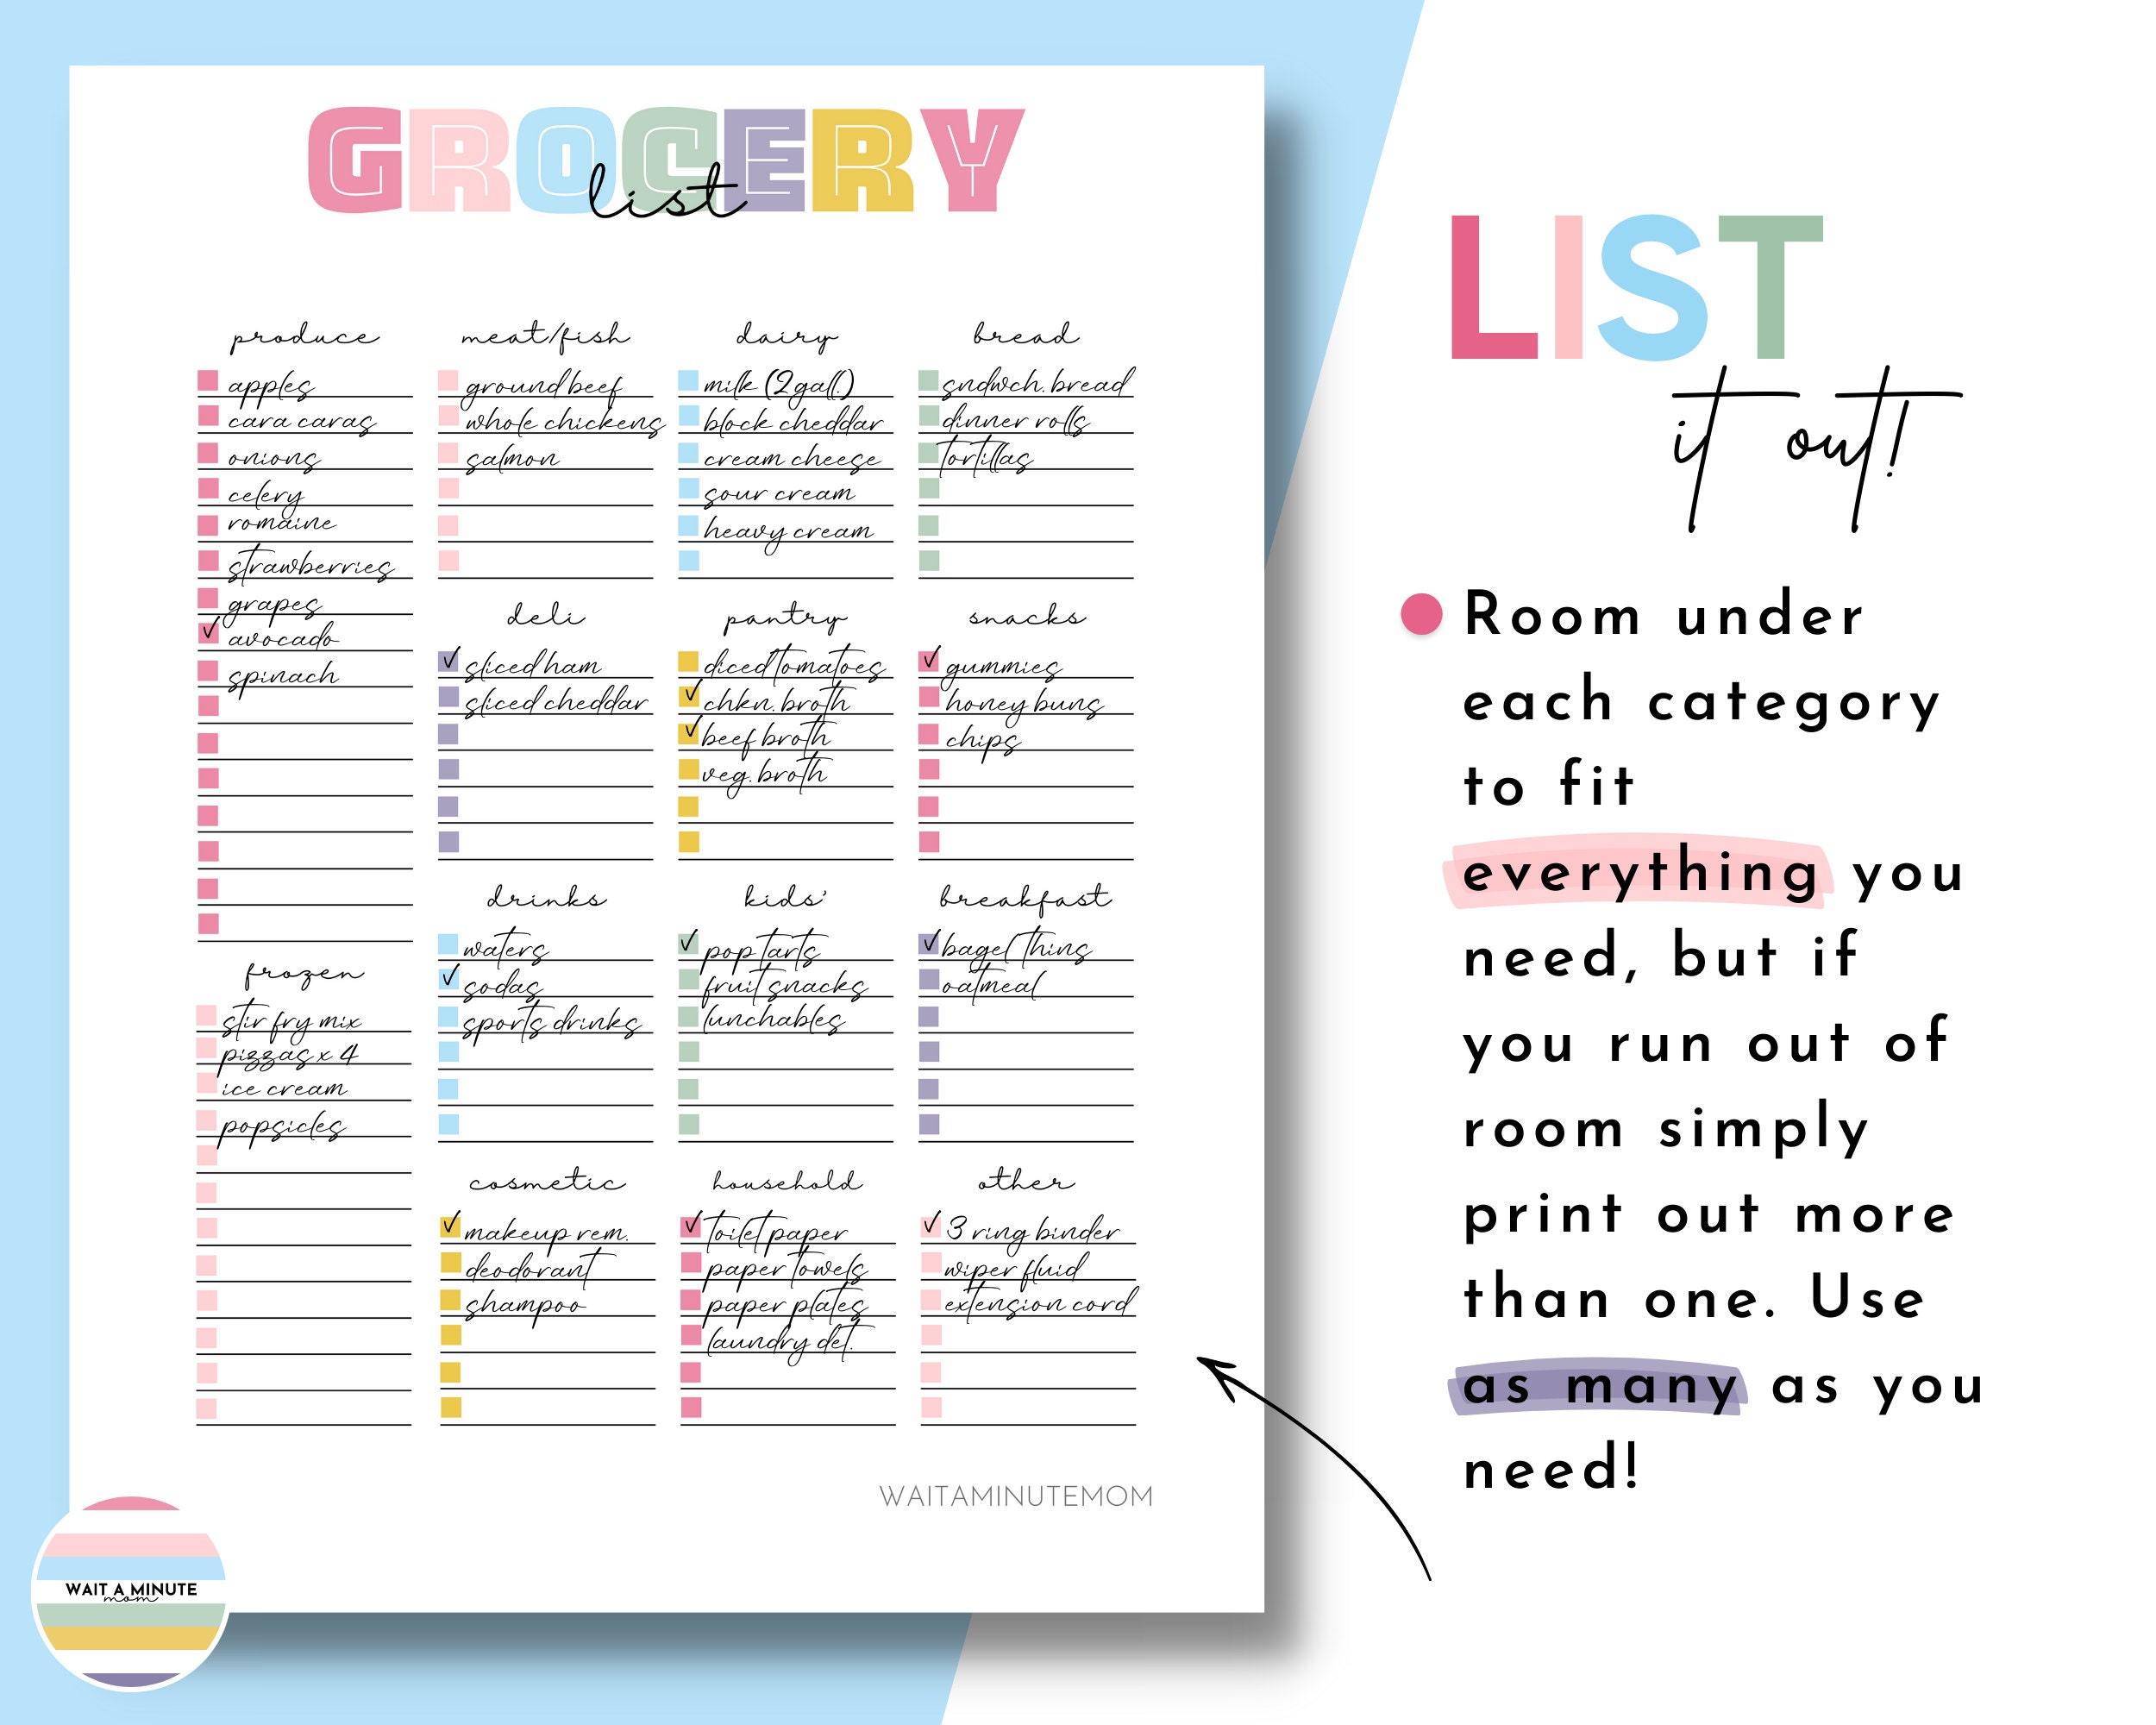 GROCERY
list
produce
apples
cara caras
onions
celery
romaine
strawberries
grapes
avocado
spinach
frozen
stir fry mix
pizzas x 4
ice cream
popsicles
meat/fish
ground beef
whole chickens
salmon
deli
sliced ham
sliced cheddar
drinks
waters
sodas
sports drinks
cosmetic
makeup rem.
deodorant
shampoo
dairy
milk (2 gall.)
block cheddar
cream cheese
sour cream
heavy cream
pantry
diced tomatoes
chkn. broth
beef broth
veg. broth
kids'
pop tarts
fruit snacks
lunchables
household
toilet paper
paper towels
paper plates
laundry det.
bread
sndwch. bread
dinner rolls
tortillas
snacks
gummies
honey buns
chips
breakfast
bagel thins
oatmeal
other
3 ring binder
wiper fluid
extension cord
WAITAMINUTEMOM
WAIT A MINUTE
mom
LIST
it out!
Room under
each category
to fit
everything you
need, but if
you run out of
room simply
print out more
than one. Use
as many as you
need!